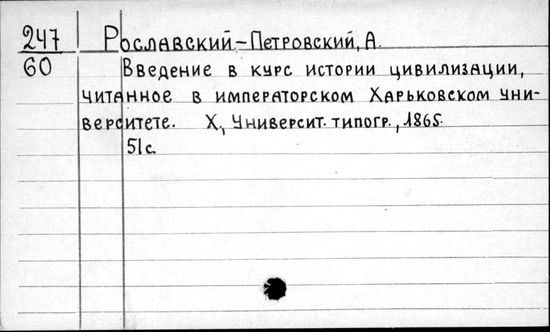 247 Рославский-Петровский, А.
60 Введение в курс истории цивилизации,
читанное в императорском Харьковском уни-
верситете. Х., Университ. типогр., 1865.
51с.